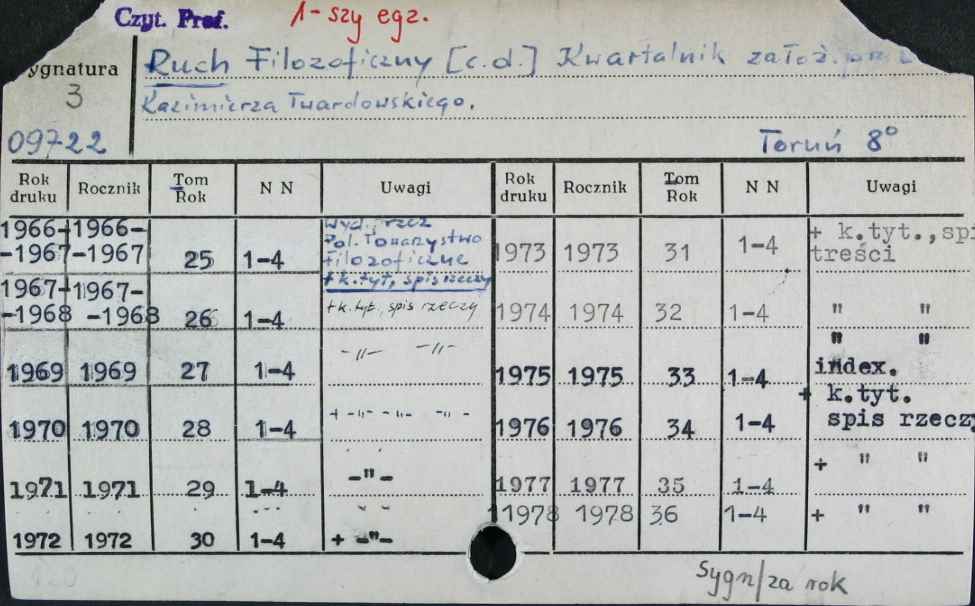 Czyt. Prof. 1-szy egz.
ygnatura Ruch Filozoficzny [c.d.] Kwartalnik założ.
3 Kazimierza Twardowskiego.
09722 Toruń 8°
Rok druku Rocznik Tom Rok N N Uwagi Rok druku Rocznik Tom Rok N N Uwagi
1966-1967 1966-1967 25 1-4 Wyd. przez Pol. Towarzystwo Filozoficzne + k. tyt, spis rzeczy 1973 1973 31 1-4 + k.tyt.,spi treści
1967-1968 1967-1968 26 1-4 + k. tyt., spis rzeczy 1974 1974 32 1-4 " "
1969 1969 27 1-4 -"- -"- 1975 1975 33 1-4 " " index.
1970 1970 28 1-4 + -"- -"- -"- 1976 1976 34 1-4 + k.tyt. spis rzeczy
1971 1971 29 1-4 -"- 1977 1977 35 1-4 + " "
1972 1972 30 1-4 + -"- 1978 1978 36 1-4 + " "
Sygn/za rok